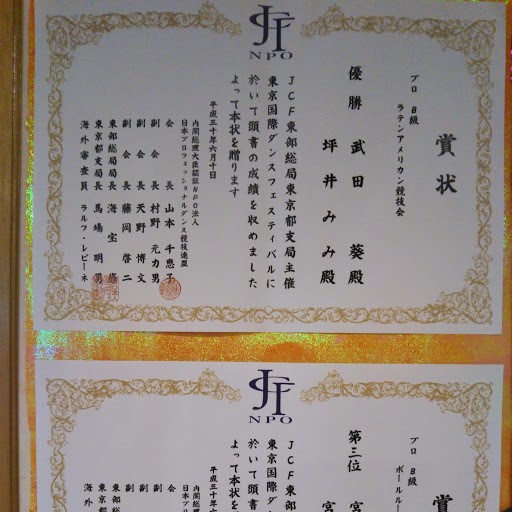 JCF
NPO
賞状
プロ B級
ラテンアメリカン競技会
優勝 武田 葵殿
坪井みみ殿
JCF東部総局東京都支局主催
東京国際ダンスフェスティバルに
於いて頭書の成績を収めました
よって本状を贈ります
平成三十年六月十日
内閣総理大臣認証NPO法人
日本プロフェッショナルダンス競技連盟
会長 山本千恵子
副会長 村野元力男
副会長 天野博文
副会長 藤岡啓二
東部総局局長 海宝
東京都支局長 馬場明男
海外審査員 ラルフ・レピーネ
JCF
NPO
賞
プロ B級
ボールルー
第三位 宮
宮
JCF東部
東京国際ダン
於いて頭書
よって本状を
平成三十
内閣総理
日本プロ
会
副
副
副
東部
東京
海外